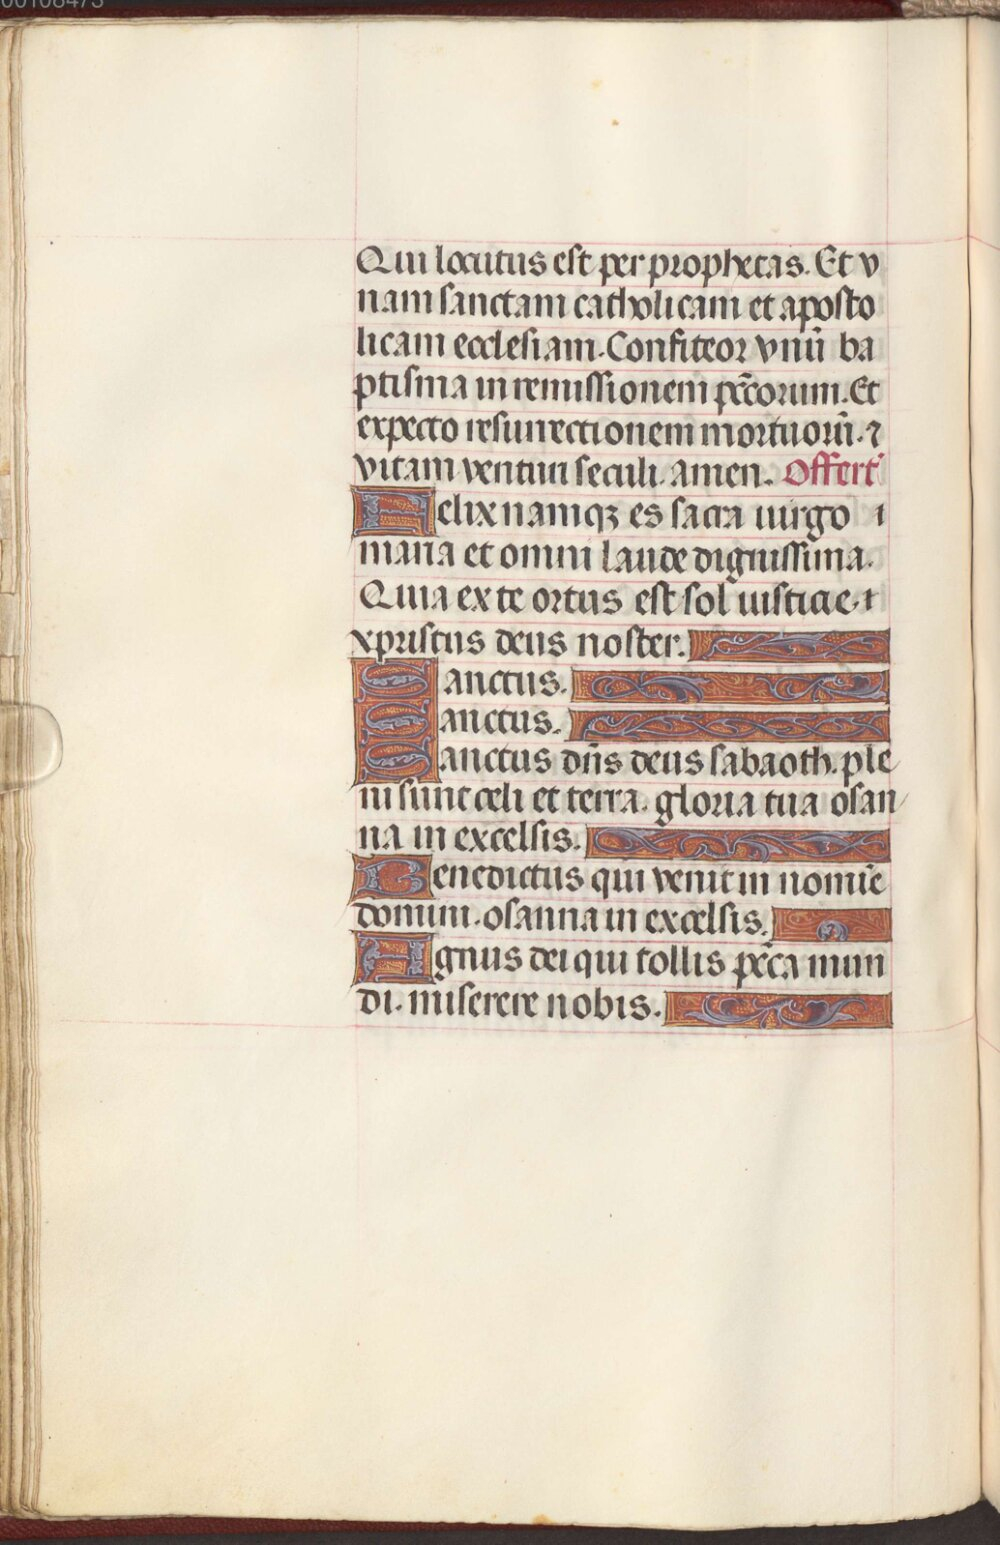 00108473
Qui locutus est per prophetas. Et v
nam sanctam catholicam et aposto
licam ecclesiam. Confiteor vnū ba
ptisma in remissionem pc̄corum. Et
expecto resurrectionem mortuorū. ⁊
vitam venturi seculi. amen. Offert
Felix namqꝫ es sacra uirgo ı
maria et omni laude dignissima.
Quia ex te ortus est sol iusticie. ı
xpristus deus noster.
Sanctus.
Sanctus.
Sanctus dn̄s deus sabaoth. ple
ni sunt celi et terra. gloria tua osan
na in excelsis.
Benedictus qui venit in nomīe
domini. osanna in excelsis.
Agnus dei qui tollis pc̄ca mun
di. miserere nobis.